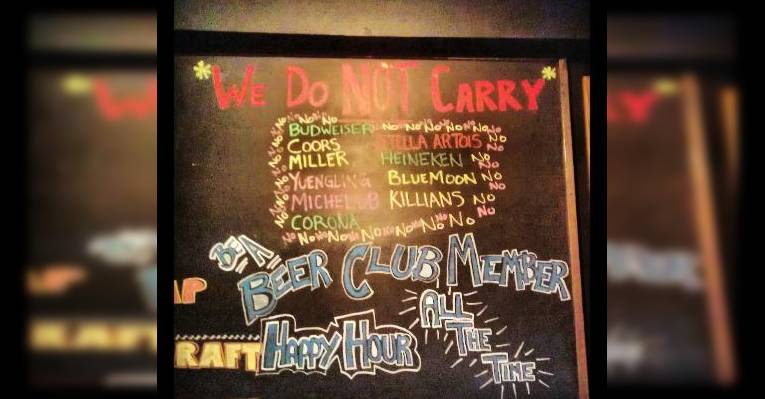 *WE DO NOT CARRY*
No No No No
BUDWEISER No No No No No No
COORS STELLA ARTOIS No
MILLER HEINEKEN No
YUENGLING BLUEMOON No
MICHELOB KILLIANS No
CORONA No No No
No No No No No No No No
BE A
BEER CLUB MEMBER
AP
ALL
RAFT HAPPY HOUR THE
TIME